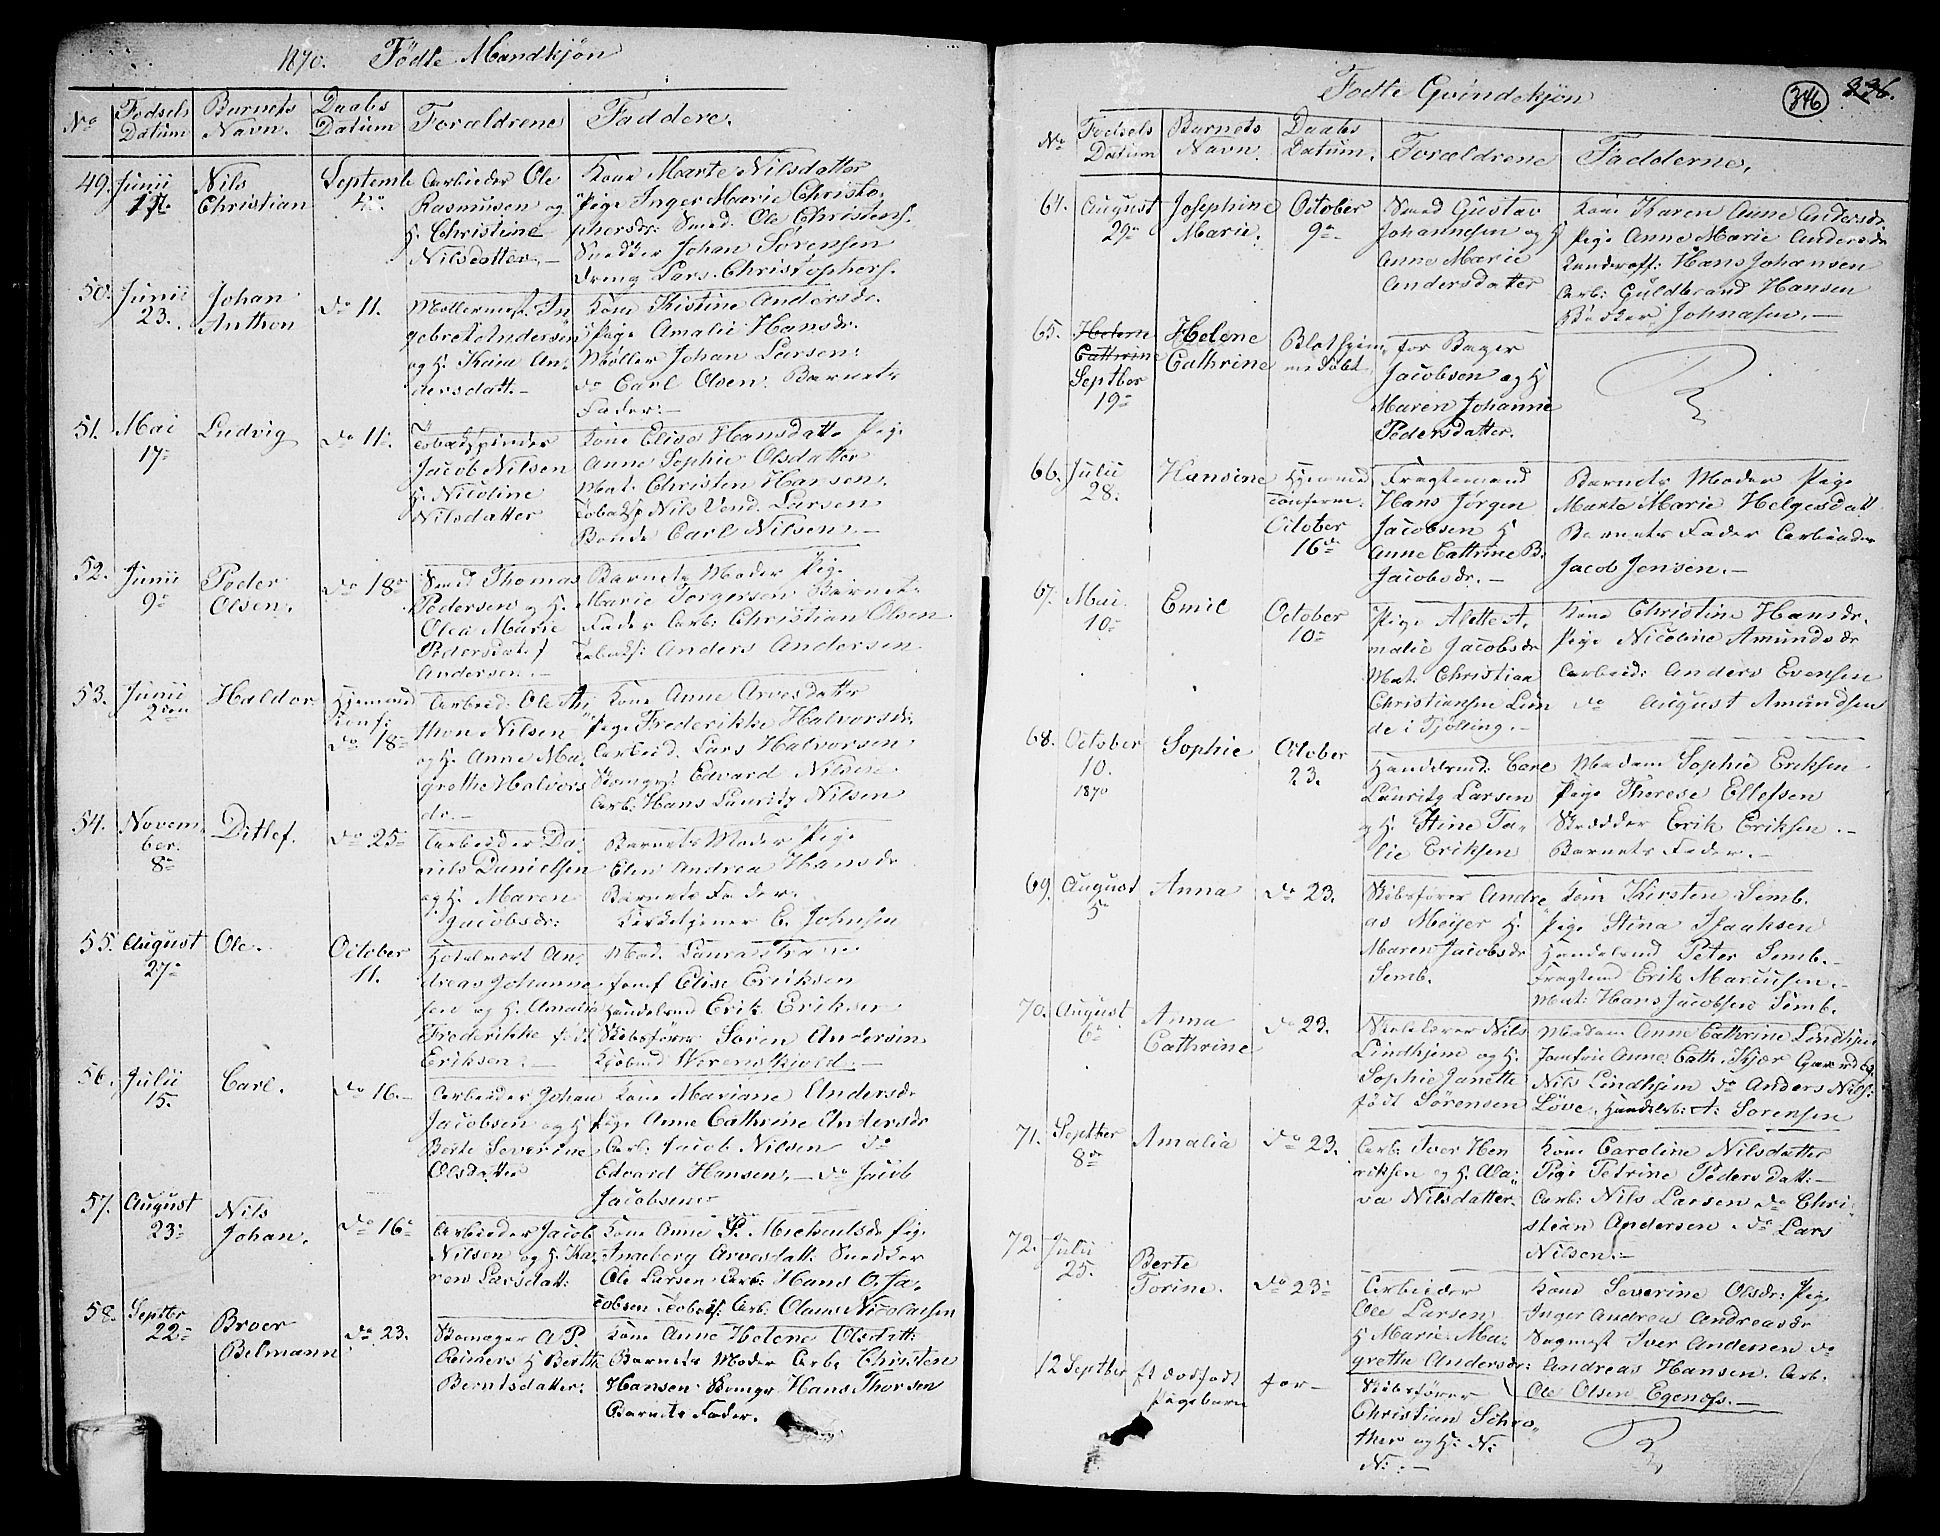 1870. Födte Mandkjön
No Fodsels Datum Barnets Navn. Daabs Datum Forældrene Faddere.
49. Junii 17. Nils Christian Septemb 4de
Arbieder Ole
Rasmusen og
H. Christine
Nilsdatter.
Kone Marte Nilsdatter
Pige Inger Marie Christo
phersdr: Smed. Ole Christens.
Snedker Johan Sörensen
Dreng Lars Christophers.
50. Junii 23. Johan Anthon Do 11.
Möllermest. In
gebret Andersen
og H. Kaia An
dersdatt.
Kone Kistine Andersdr.
Pige Amalie Hansdr.
Möller Johan Larsen
do Carl Olsen. Barnets
Fader.
51. Mai 17. Ludvig Do 11.
Tobakspinder
Jacob Nilsen
H. Nicoline
Nilsdatter
Kone Elise Hansdatt. Pige
Anne Sophie Olsdatter
Mat. Christen Hansen.
Tobaksp Nils Vend. Larsen
Bonde Carl Nilsen.
52. Junii 9. Peder Olsen. Do 18
Smed Thomas
Pedersen og H.
Olea Marie
Pedersdat f
Andersen.
Barnets Moder Pige
Marie Torgersen Barnets
Fader Arb: Christian Olsen
Tobaksf: Anders Andersen
53. Junii 2den Haldor Hjemmed Konf: Do 18
Arbeid: Ole An
thon Nilsen
og H. Anne Ma
grethe Halvors
dr.
Kone Anne Arvesdatter
Pige Frederikke Halvorsdr.
Arbeid. Lars Halvorsen
Skomag: Edvard Nilsen
Arb: Hans Lauritz Nilsen
54. November 8. Ditlef. Do 25
Arbeider Da
niels Danielsen
og H. Maren
Jacobsdr:
Barnets Moder Pige
Elen Andrea Hansdr
Barnets Fader.
Kirketjener C. Johnsen
55. August 27. Ole. October 11.
Hotelvert An
dreas Johanne
sen og H. Amalia
Frederikke födt
Eriksen.
Mad. Laura
Jomf Elise Eriksen
Handelsmd Erik Eriksen
Skibsförer Sören Andersen
Kjöbmd Werenskjold.
56. Julii 15. Carl. Do 16.
Arbeider Johan
Jacobsen og H
Berte Severine
Olsdatter
Kone Mariane Andersdr
Pige Anne Cathrine Andersdr
Arb: Jacob Nilsen do
Edvard Hansen. do Jacob
Jacobsen
57. August 23. Nils Johan. Do 16
Arbeider Jacob
Nilsen og H. Ka
ren Larsdatt:
Kone Anne P. Michaelsdr Pige
Ingeborg Arvesdatt. Snedker
Ole Larsen Arb: Hans O. Ja
cobsen Tobaksf: Arb. Olaus Nicolaisen
58. Septbr 22. Broer Belmann Do 23.
Skomager A P
Reiners H Berthe
Berntsdatter:
Kone Anne Helene Olsdatt:
Barnets Moder Arb: Christen
Hansen Skomgr Hans Thorsen
Barnets Fader.
Födte Qvindekjön
346 336.
No Fodsels Datum Barnets Navn Daabs Datum. Forældrene Fadderne.
64. August 29 Josephine Marie. October 9
Smed Gustav
Johannesen og H
Anne Marie
Andersdatter
Kone Karen Anne Andersdr
Pige Anne Marie Andersdr
Underoff: Hans Johansen
Arb: Guldbrand Hansen
Bödker Johnasen.
65. Helene Cathrine Septber 19 Helene Cathrine
for Bager
Jacobsen og H
Maren Johanne
Pedersdatter.
66. Julii 28. Hansine Hjemmed Conferm. October 16de
Fragtemand
Hans Jørgen
Jacobsen H
Anne Cathrine B.
Jacobsdr.
Barnets Moder Pige
Marte Marie Helgesdatt
Barnets Fader Arbeider
Jacob Jensen.
67. Mai 10. Emil October 10
Pige Alette A
malie Jacobsdr
Mat. Christian
Christiansen Lun
de i Tjölling.
Kone Christine Hansdr.
Pige Nicoline Amundsdr
Arbeid: Anders Evensen
do August Amundsen
68. October 10. 1870 Sophie October 23.
Handelsmd: Carl
Lauritz Larsen
og H. Stine Ta
lie Eriksen
Madam Sophie Eriksen
Pige Therese Ellefsen
Skrædder Erik Eriksen.
Barnets Fader.
69. August 5 Anna Do 23.
Skibsförer Andre
as Meijer H.
Maren Jacobsdr
Semb.
Kone Kirsten Semb.
Pige Stina Isaaksen
Handelsmd Peter Semb.
Fragtmd Erik Marcusen.
Mat: Hans Jacobsen Semb.
70. August 6 Anna Cathrine Do 23.
Nils
Lindhjem og H.
Sophie Janette
födt Sörensen
Madam Anne Cathrine Lindhjem
Jomfru Anne Cath. Kjær
Nils Lindhjem do Anders Nils:
Löve. Handelsb: A: Sorensen
71. Septber 8de Amalia Do 23.
Arb: Iver Hen
riksen og H. Ola
va Nilsdatter
Kone Caroline Nilsdatter
Pige Petrine Pedersdatt:
Arb: Nils Larsen do Chri
stian Andersen do Lars
Nilsen.
72. Julii 25. Berte Torine. Do 23
Arbeider
Ole Larsen
H Marie Ma
grethe Andersdr:
Kone Severine Olsdr: Pige
Inger Andrea Andreasdr
Sagmest Iver Andersen do
Andreas Hansen. Arb.
Ole Olsen Egenæss.
12 Septber et dödfödt Pigebarn for
Skibsförer
Christian Schrö
ther og H: N:
N: